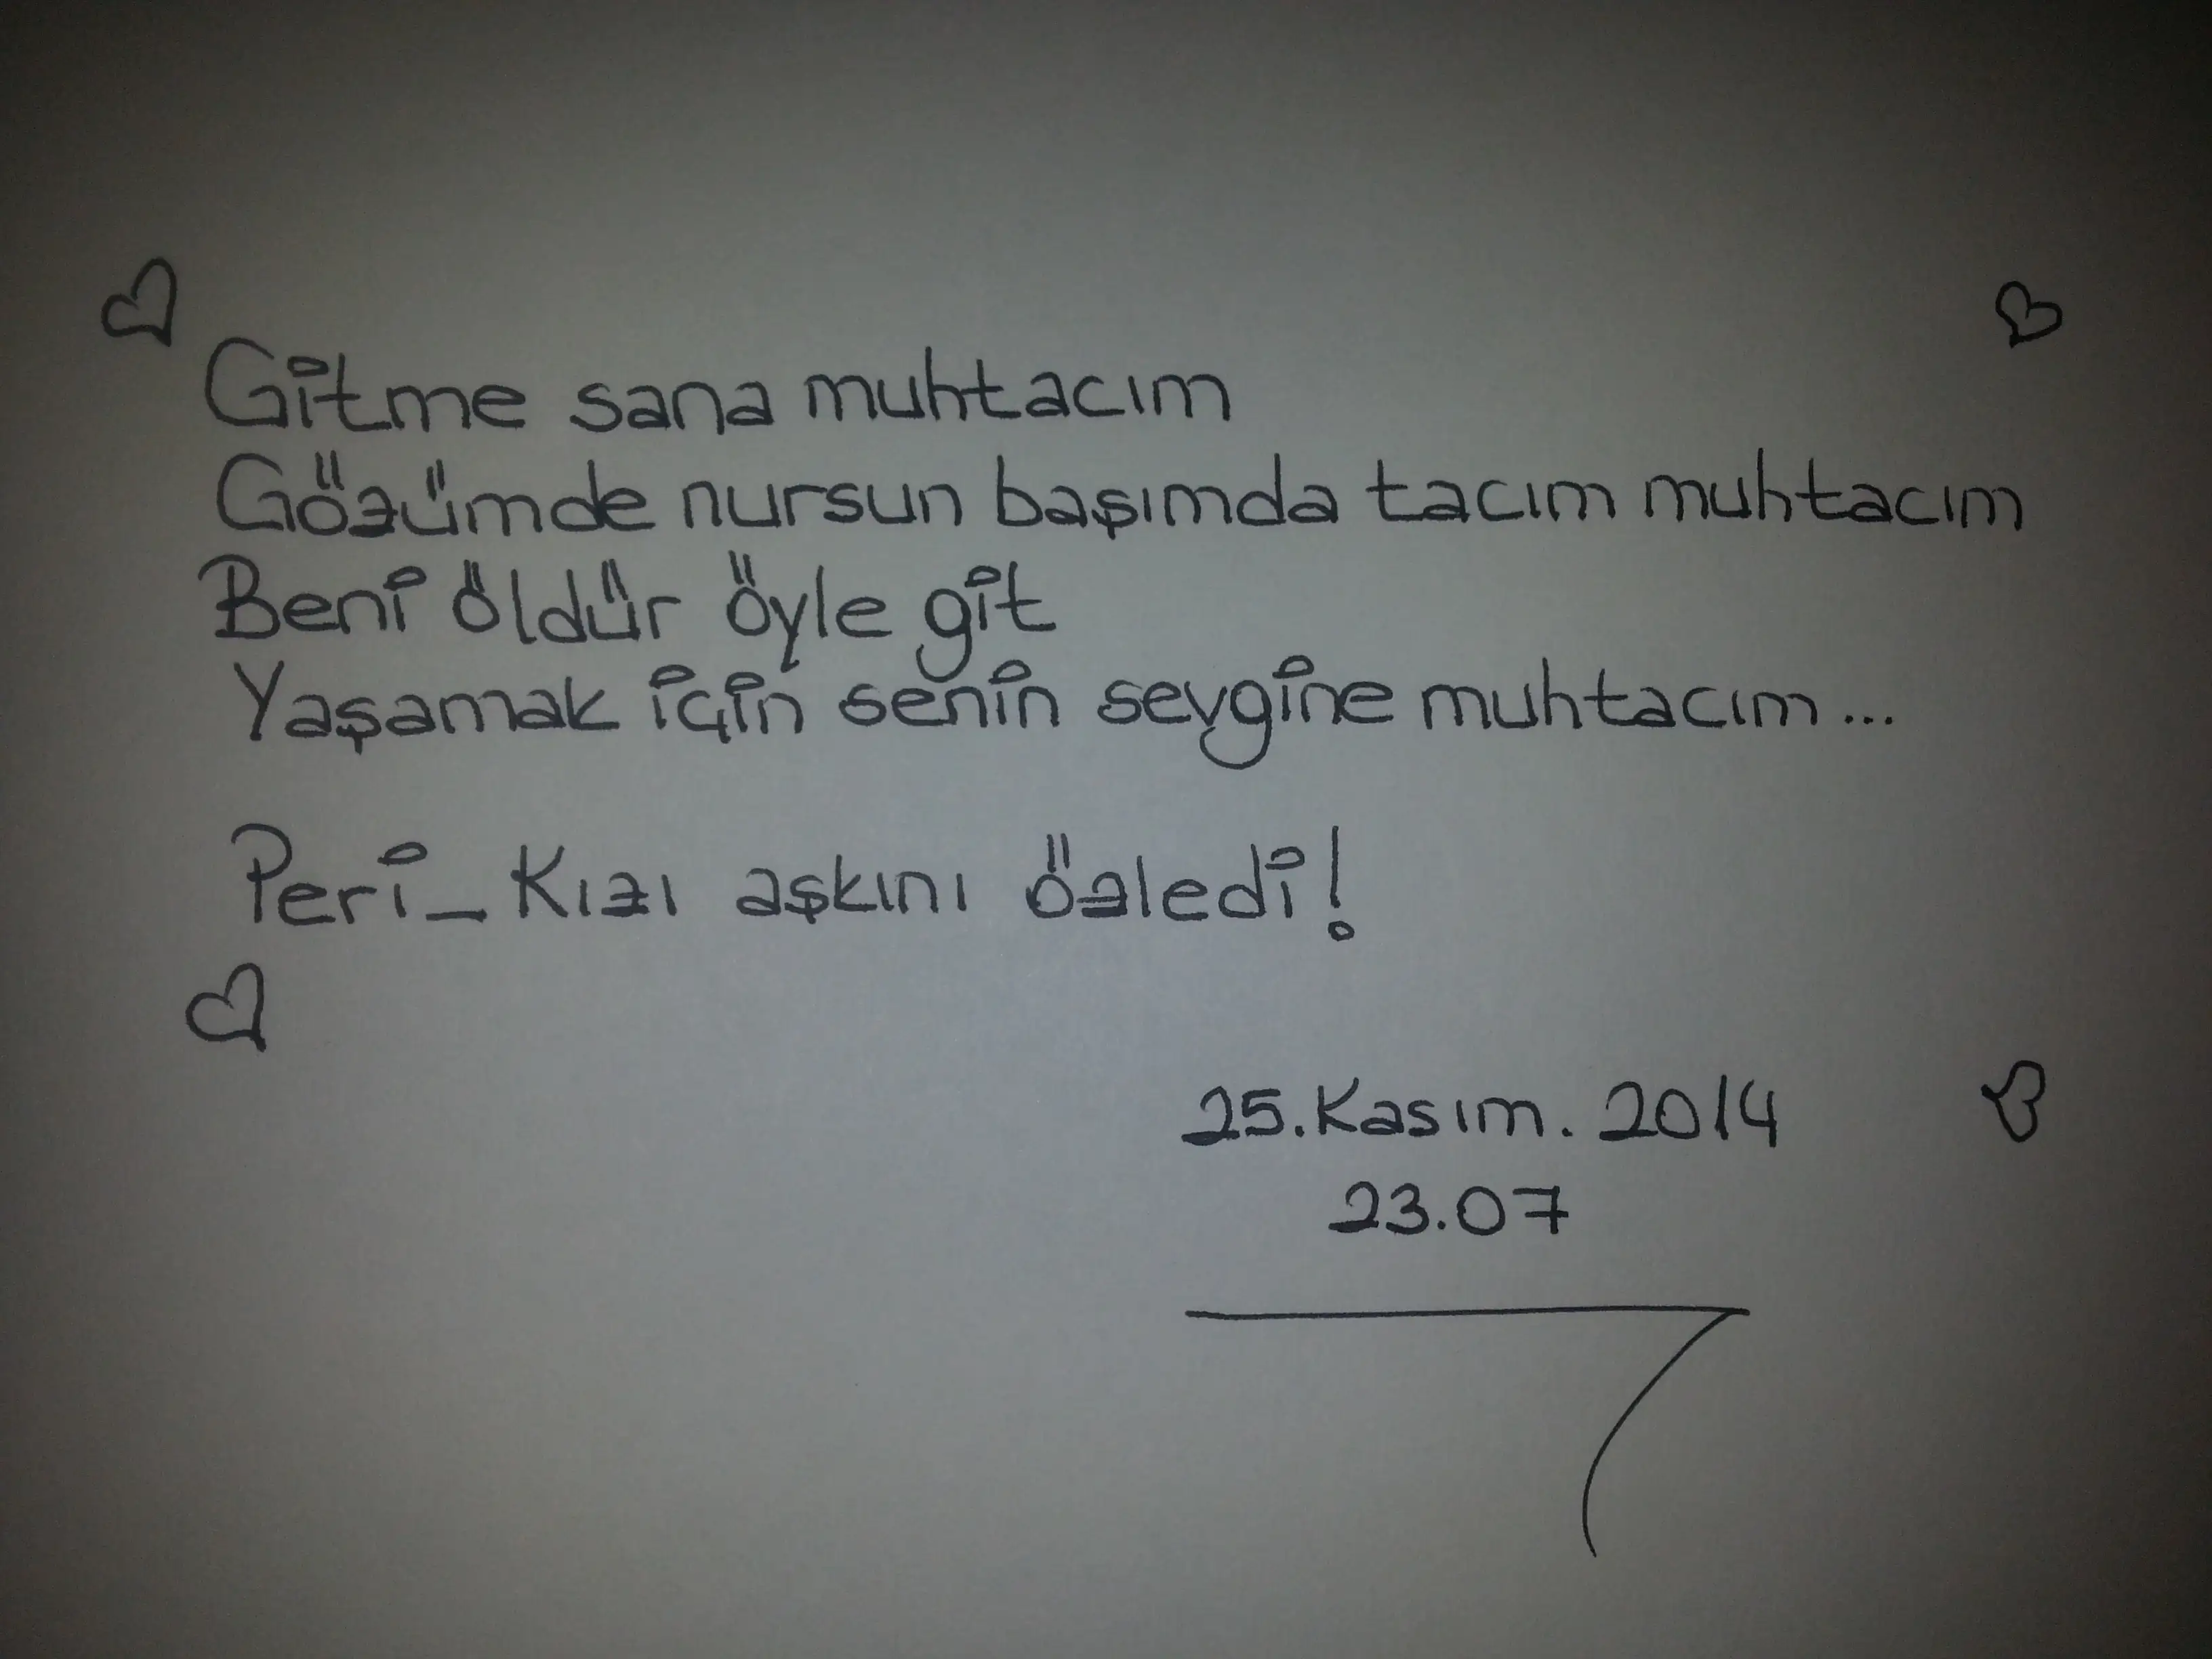 Gitme sana muhtacım
Gözümde nursun başımda tacım muhtacım
Beni öldür öyle git
Yaşamak için senin sevgine muhtacım...
Peri_Kızı aşkını özledi!
25.Kasım.2014
23.07